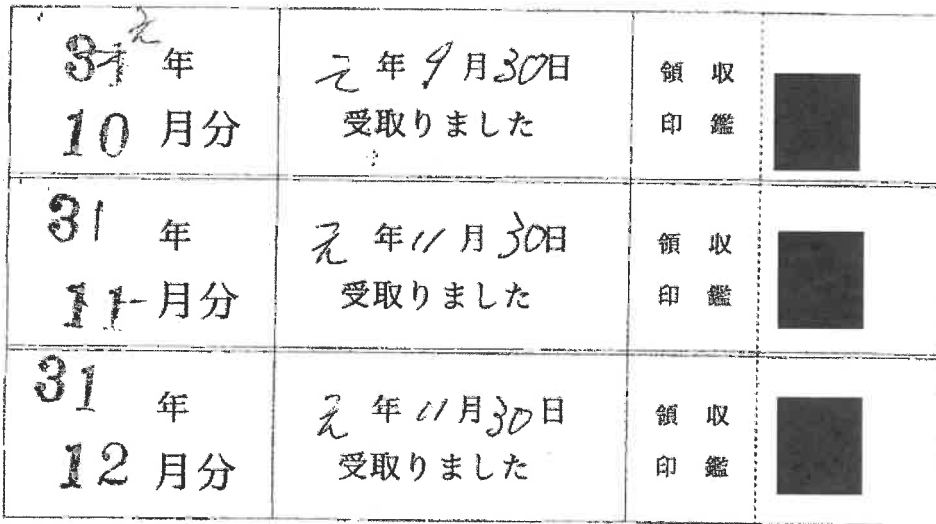 元
31 年
10 月分
元 年 9 月 30日
受取りました
領 収
印 鑑
31 年
11 月分
元 年 11 月 30日
受取りました
領 収
印 鑑
31 年
12 月分
元 年 11 月 30日
受取りました
領 収
印 鑑